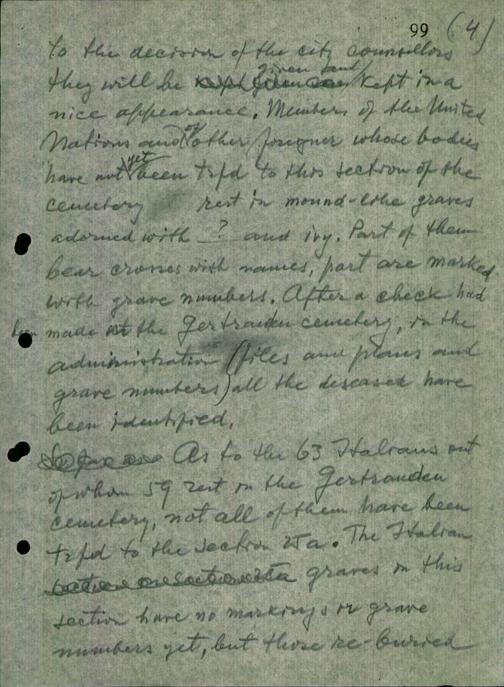 99 (4)
to the decision of the city counsellors
they will be given and kept in a
nice appearance. Members of the United
Nations and of other foreigner whose bodies
have not yet been trfd to this section of the
cemetery rest in mound-like graves
adorned with ? and ivy. Part of them
bear crosses with names, part are marked
with grave numbers. After a check had
been made at the Gertrauden cemetery, in the
administration (files and plans and
grave numbers) all the deseased have
been identified.
As to the 63 Italians out
of whom 59 rest on the Gertrauden
cemetery, not all of them have been
trfd to the section 25a. The Italian
graves on this
section have no markings or grave
numbers yet, but those re-buried